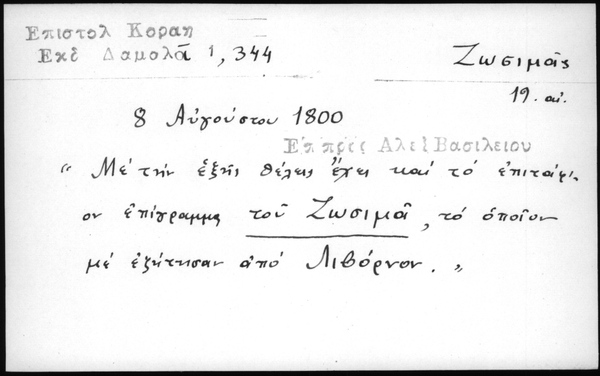 Επιστολ Κοραη
Εκδ Δαμολᾶ 1, 344
Ζωσιμᾶς
19. αἰ.
8 Αὐγούστου 1800
Επ πρὸς Αλεξ Βασιλειου
" Μέ τήν ἑξῆς θέλεις ἔχει καί τό ἐπιτάφι-
ον ἐπίγραμμα τοῦ Ζωσιμᾶ, τό ὁποῖον
μέ ἐζήτησαν ἀπό Λιβόρνον. "